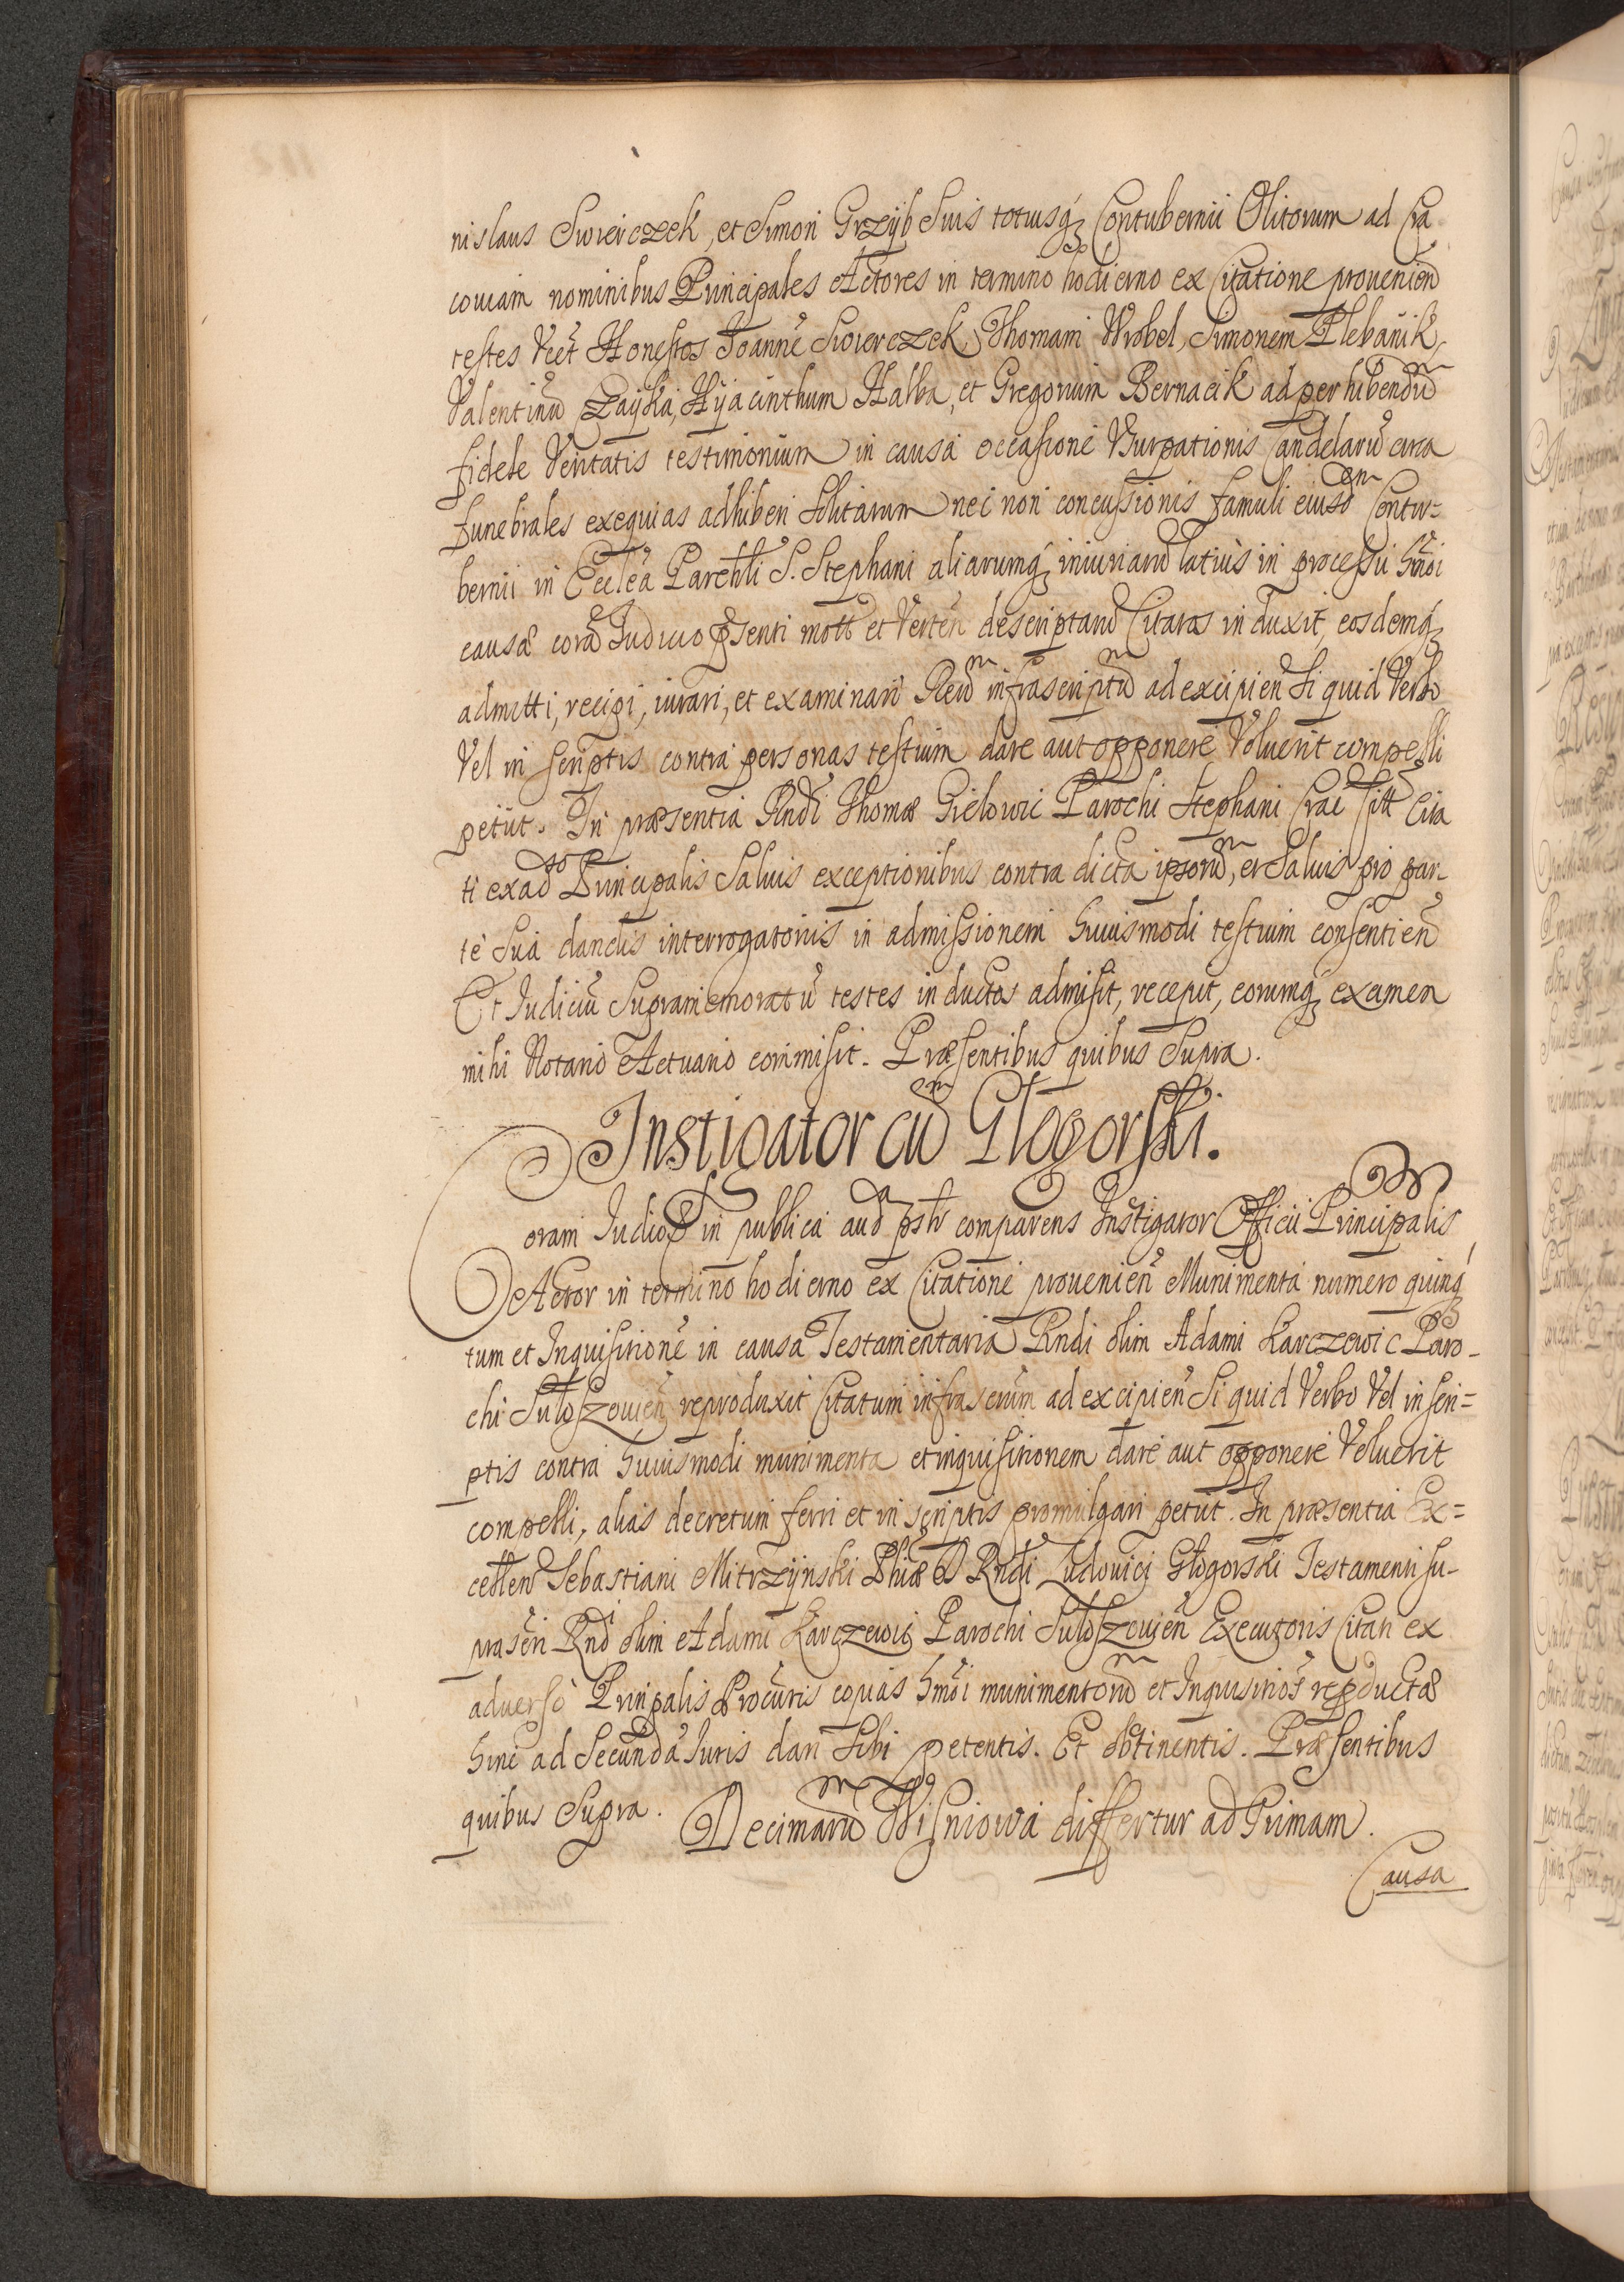 nislaus Swierczek, et Simon Grzÿb Suis totiusq́ Contubernii Olitorum ad Cra
couiam nominibus Principales Actores in termino hodierno ex Citatione prouenien̄
testes Vczt Honestos Joannē Swierczek, Thomam Wrobel, Simonem Plebanik,
Valentinū Zaÿka, Hÿacinthum Halba, et Gregorium Bernacik ad perhibendū
fidele Veritatis testimonium in causa occasione Vsurpationis Candelarū circa
funebrales exequias adhiberi solitarum nec non concussionis famuli eiusd Contu-
bernii in Eccleā Parchli S. Stephani aliarumq́ iniuriarū latius in processu hmōi
causæ corā Judicio p̄senti mott et Verteñ descriptarū Citatos induxit, eosdemq́
admitti, recipi, iurari, et examinari Reū infrascriptū ad excipien̄ Si quid Verbo
Vel in scriptis contra personas testium dare aut opponere Voluerit compelli
petiit. In præsentia Rndi Thomæ Gielowic Parochi Stephani Crac Citt Cita
ti ex adso Principalis Saluis exceptionibus contra dicta ipsorū, et Saluis pro par-
te Sua dandis interrogatoriis in admissionem huiusmodi testium consentien̄
Et Judiciū Supramemoratū testes inductos admisit, recepit, eorumq́ examen
mihi Notario Actuario commisit. Præsentibus quibus Supra.
Instigator cū Głogorski.
Coram Judio p̄ in publica aud psłr comparens Instigator Officii Principalis
Actor in termino hodierno ex Citatione prouenien̄ Munimenta numero quinq́
tum et Inquisitionē in causa Testamentaria Rndi olim Adami Karczewic Paro-
chi Sułoszouien̄ reproduxit Citatum infrascrūm ad excipien̄ Si quid Verbo Vel in scri-
ptis contra huiusmodi munimenta et inquisitionem dare aut opponere Voluerit
compelli, alias decretum ferri et in scriptis promulgari petiit. In præsentia Ex-
cellen̄ Sebastiani Mitrzÿnski Phiæ D Rndi Ludouici Głogorski Testamenti su-
prascri Rndi olim Adami Karczewic Parochi Sułoszouien̄ Executoris Citati ex
aduerso Prinpalis Procūris copias hmōi munimentorū et Inquisitiōs repductæ
hinc ad Secundā Juris dari Sibi petentis. Et obtinentis. Præsentibus
quibus Supra. Decimarū Wisniowa differtur ad Primam.
Causa